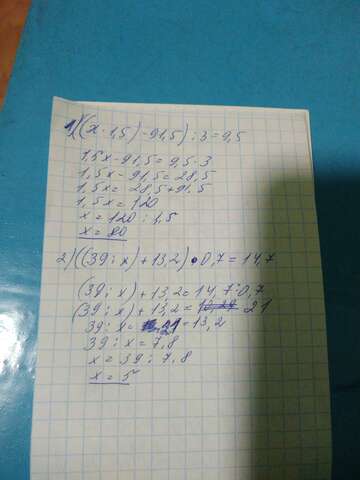 1)((x·1,5)-91,5):3=9,5
1,5x-91,5=9,5·3
1,5x-91,5=28,5
1,5x=28,5+91.5
1,5x=120
x=120:1,5
x=80
2)((39:x)+13,2)·0,7=14,7
(39:x)+13,2=14,7:0,7
(39:x)+13,2=21
39:x=21-13,2
39:x=7,8
x=39:7,8
x=5